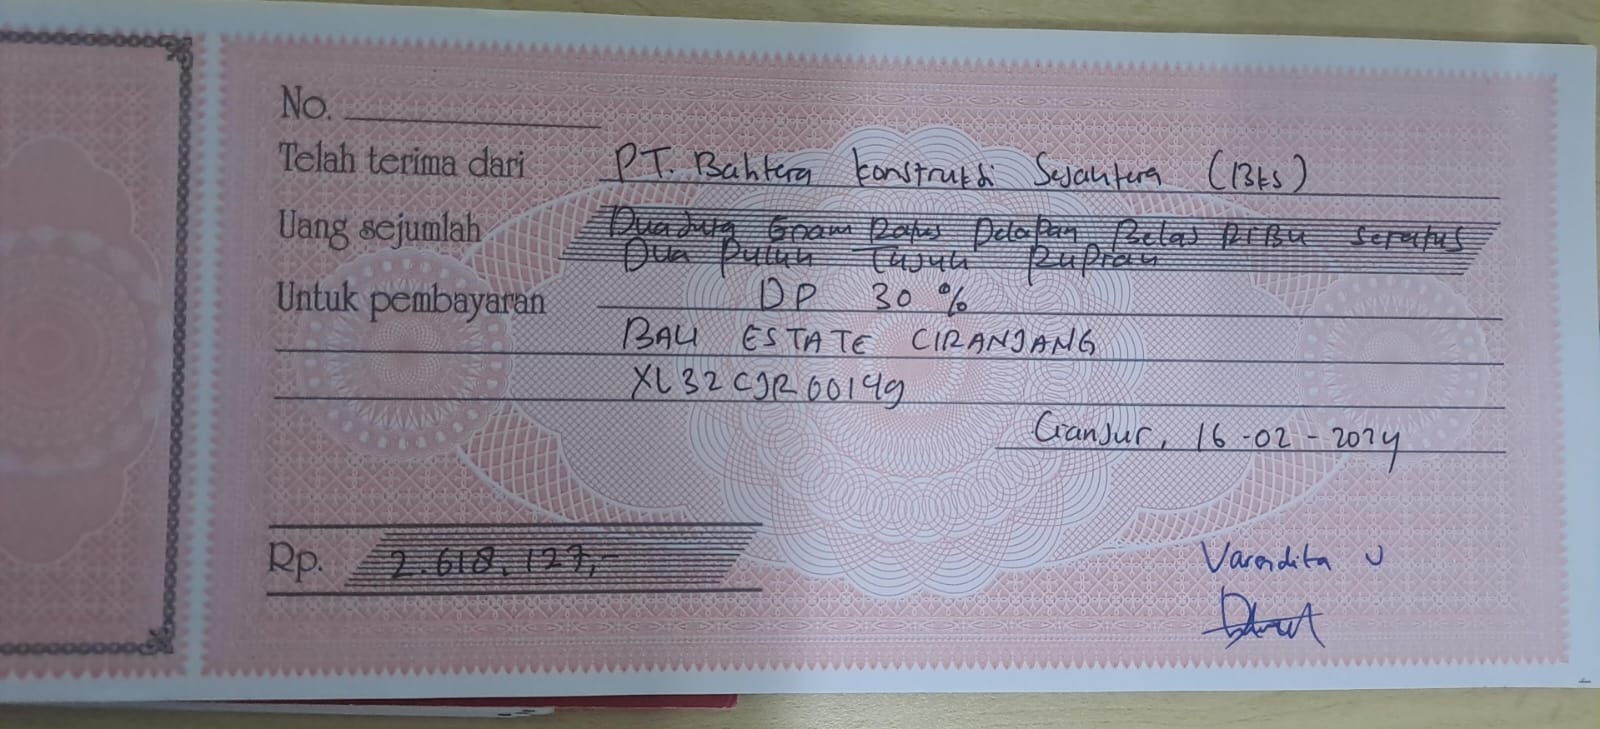 No.
Telah terima dari PT. Bahtera Konstruksi Sejahtera (BKS)
Uang sejumlah Dua Juta Enam Ratus Delapan Belas RiBu Seratus
Dua Puluh Tujuh Rupiah
Untuk pembayaran DP 30 %
BALI ESTATE CIRANJANG
XL32CJR00149
Cianjur, 16-02-2024
Rp. 2.618.127,-
Varendita U